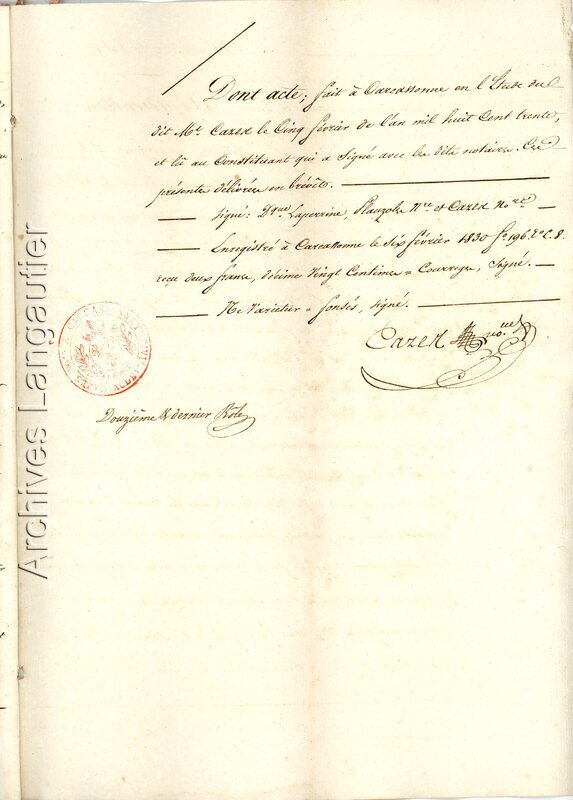 Dont acte; fait à Carcassonne en l'Etude du
dit Me. Cazes le Cinq février de l'an mil huit Cent trente,
et lû au Constituant qui a Signé avec les dits notaires. Ces
présentes délivrées en brévèts.
Signé: Dque. Laperrine, Plauzoles Nre et Cazes Nores.
Enregistré à Carcassonne le Six février 1830 fo. 196. Ro C. 8.
reçu deux francs, décime Vingt Centimes = Courrege, Signé.
Ne Varietur = fonsés, signé.
Cazes nore.
Douzième & dernier Rôle
Archives Langautier